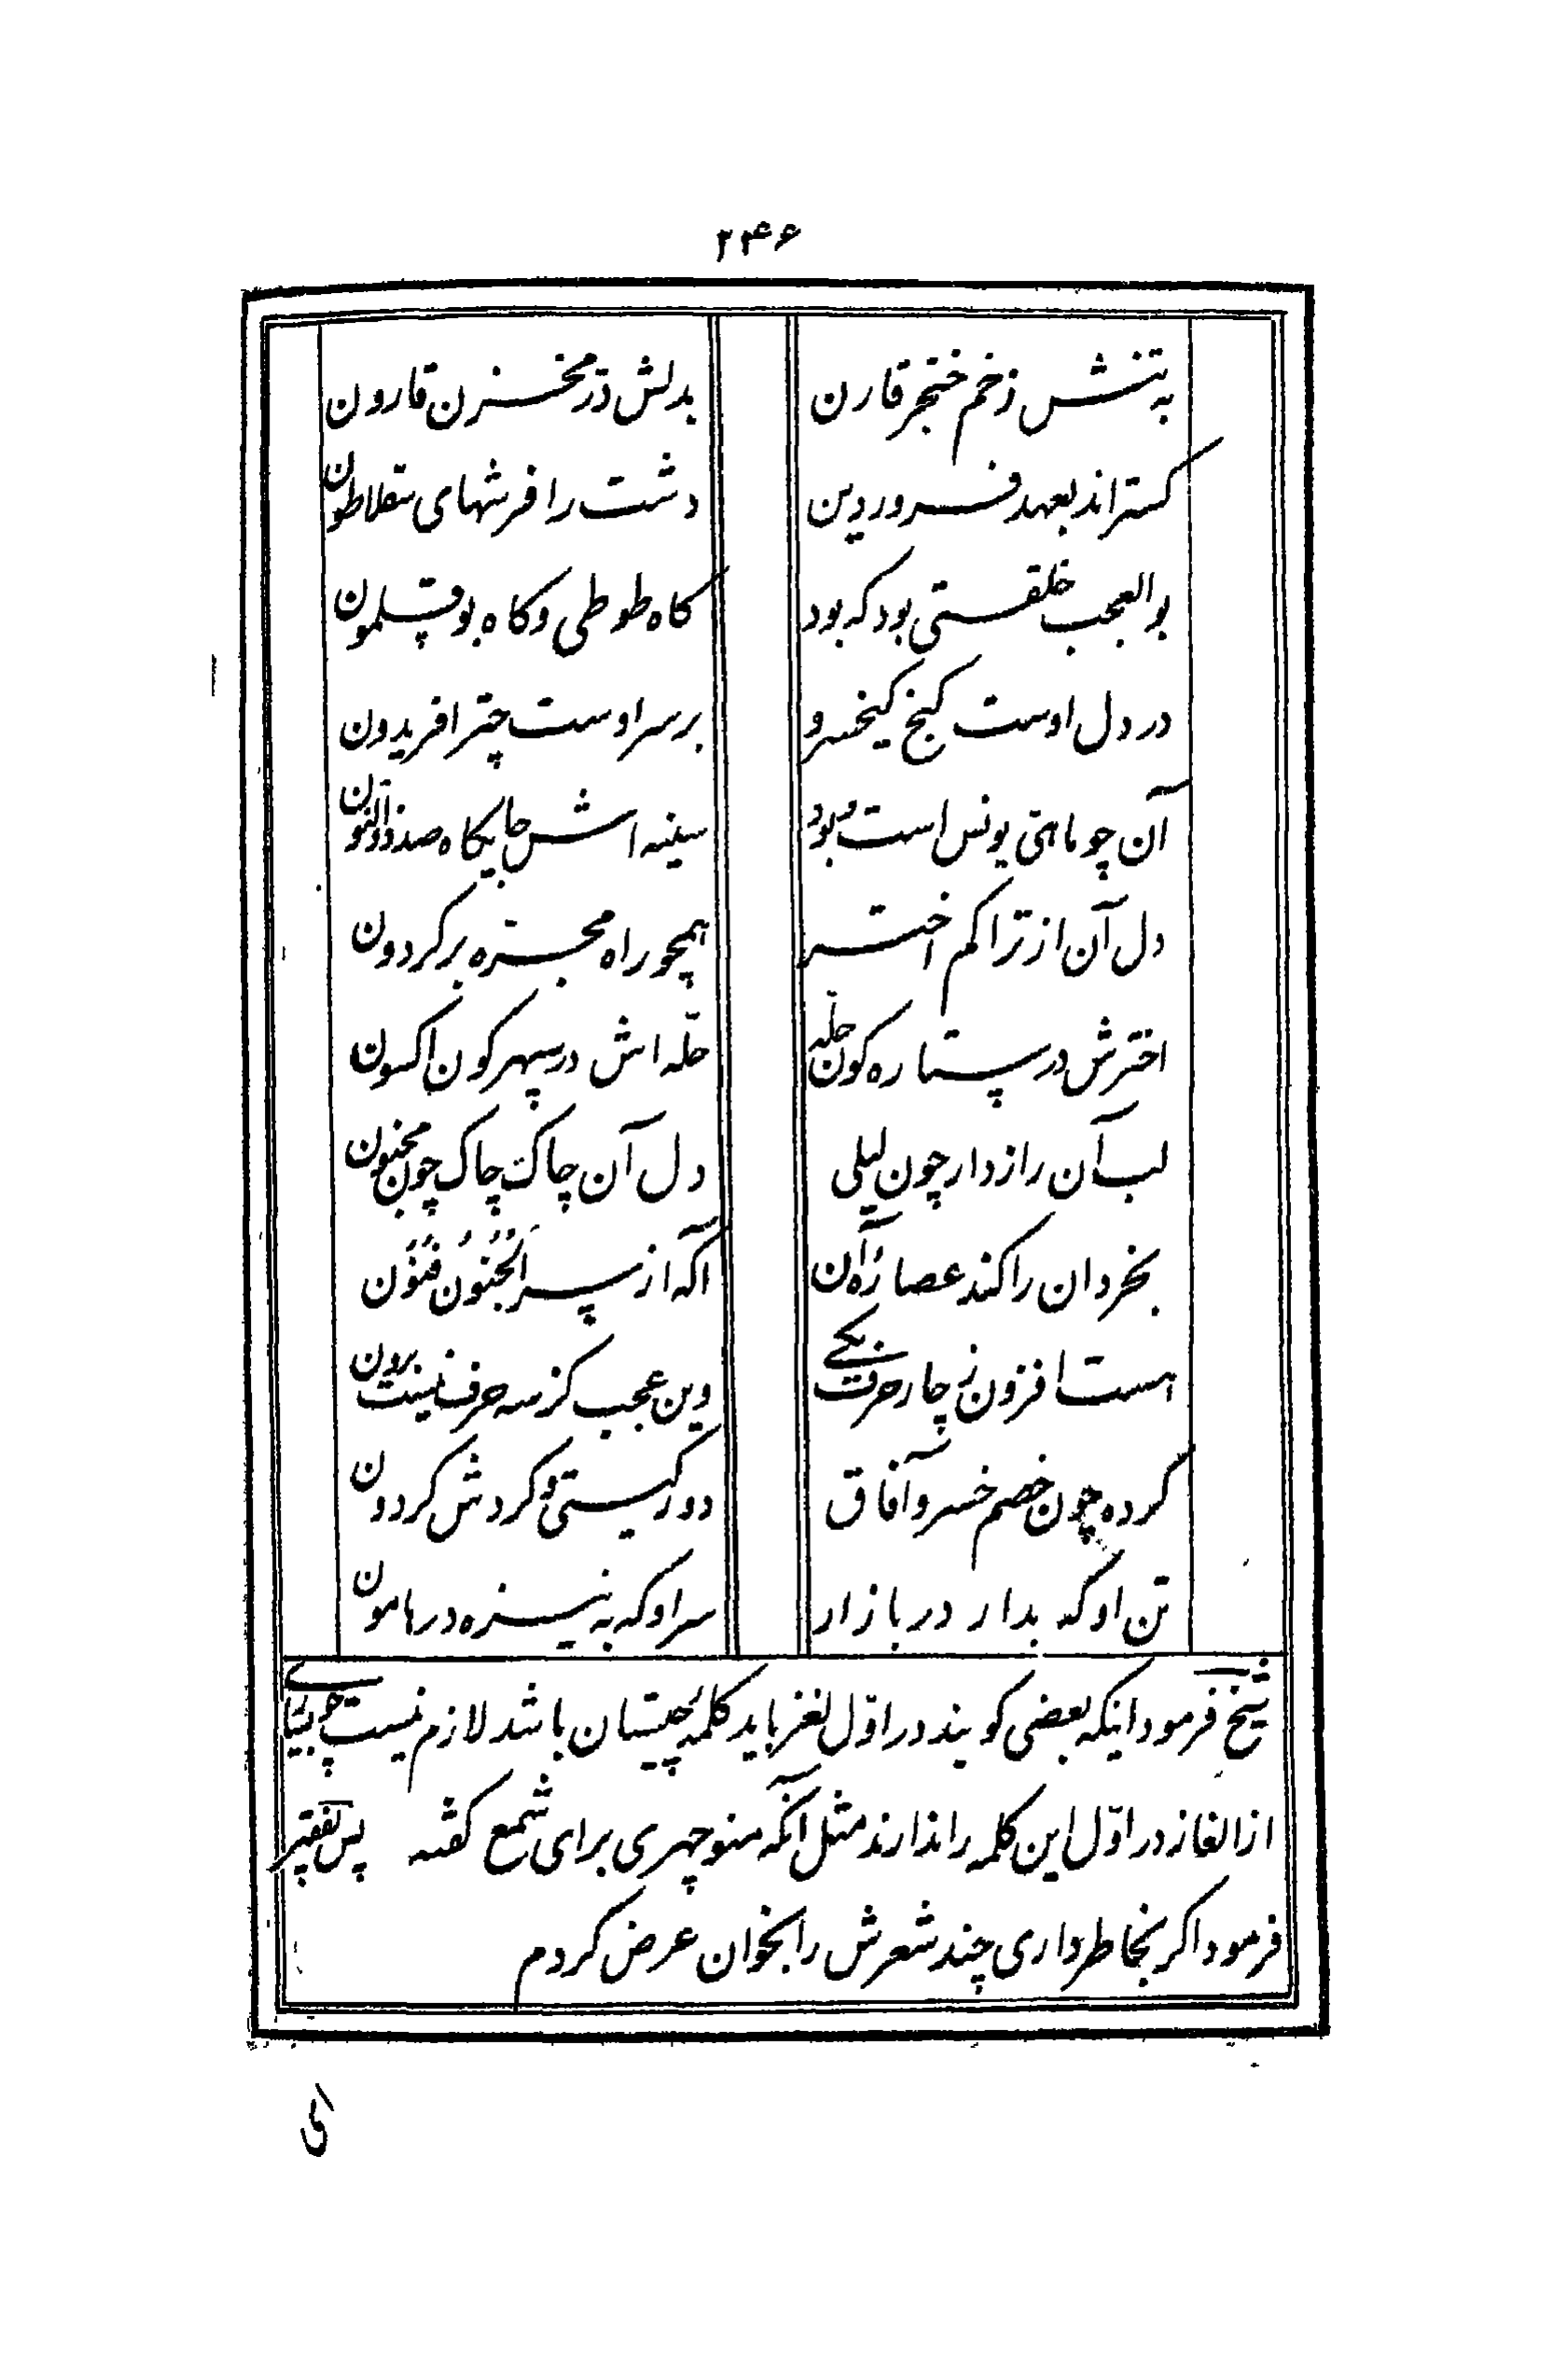 ۲۴۶
به تنش زخم خنجر قارن بدلش در مخزن قارون
کستراند بعهد فروردین دشت را فرشهای سقلاطون
بوالعجب خلقتی بود که بود کاه طوطی و کاه بوقلمون
در دل اوست کنج کیخسرو بر سر اوست چتر افریدون
آن چو ماهی یونس است و بود سینه اش جایکاه صد ذوالنون
دل آن از تراکم اختر همچو راه مجره بر کردون
اخترش در ستاره کون حلّه حلّه اش در سپهر کون اکسون
لب آن رازدار چون لیلی دل آن چاک چاک چون مجنون
بخردان را کند عصارۀ آن آکه از سر اَلجُنون فُنُون
هست افزون ز چار حرف یکی وین عجب کز سه حرف نیست برون
کرده چون خصم خسرو آفاق دور کیستی و کردش کردون
تن او که بدار در بازار سر او که به نیزه در هامون
شیخ فرمود اینکه بعضی کویند در اوّل لغز باید کلمۀ چیستان باشد لازم نیست چه بسیاری
از الغاز در اوّل این کلمه را ندارند مثل آنکه منوچهری برای شمع کفته پس بفقیر
فرمود اکر بخاطر داری چند شعرش را بخوان عرض کردم
ای